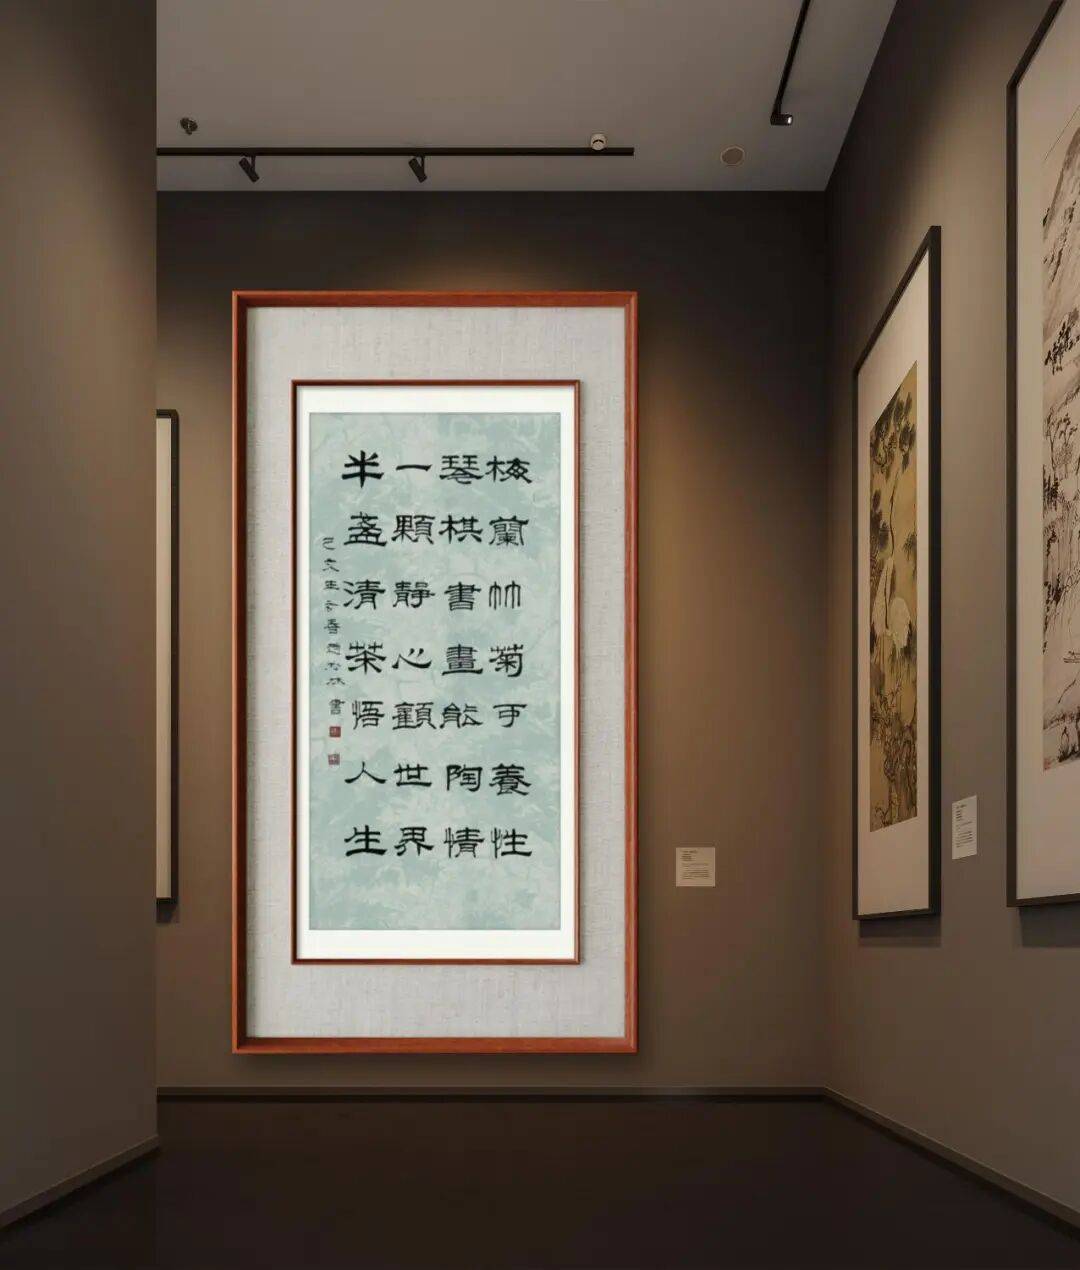 梅蘭竹菊可養性
琴棋書畫能陶情
一顆靜心顧世界
半盞清茶悟人生
己亥年 書